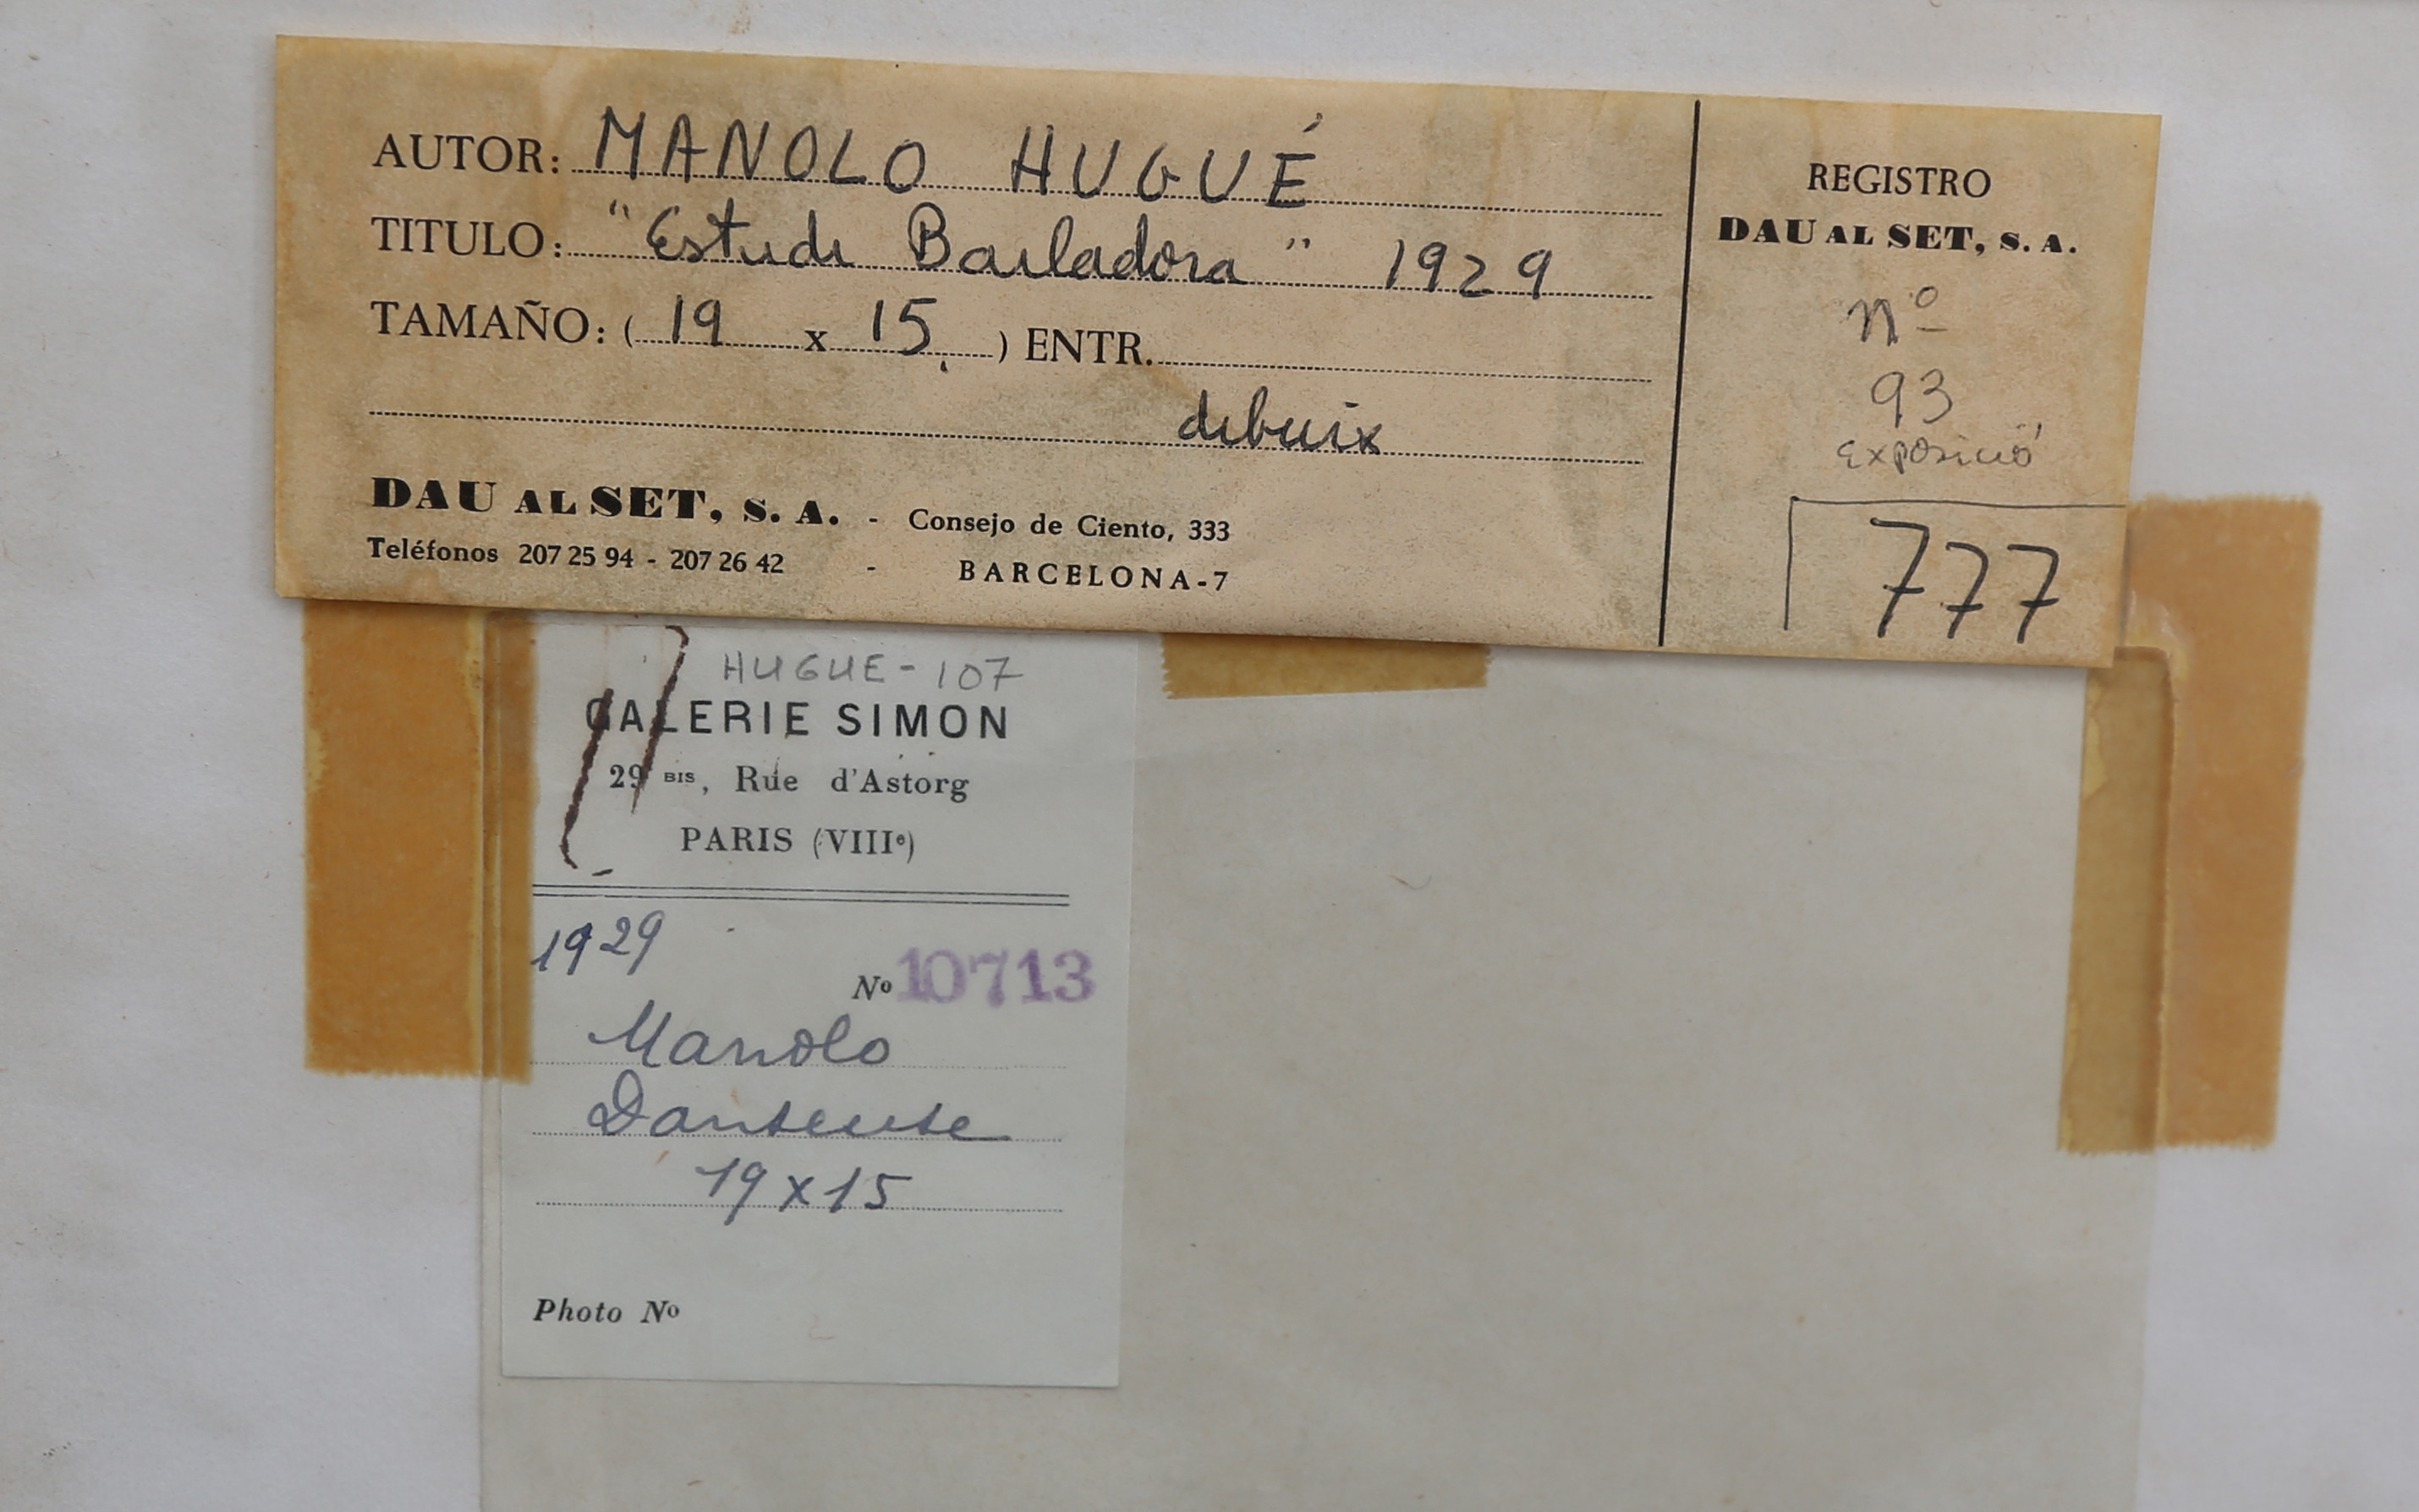 AUTOR: MANOLO HUGUÉ
TITULO: "Estudi Bailadora" 1929
TAMAÑO: ( 19 x 15 ) ENTR.
dibuix
DAU AL SET, S. A. - Consejo de Ciento, 333
Teléfonos 207 25 94 - 207 26 42 - BARCELONA-7
REGISTRO
DAU AL SET, S. A.
nº
93
exposició
777
HUGUE-107
GALERIE SIMON
29 BIS, Rue d'Astorg
PARIS (VIIIe)
1929
Nº 10713
Manolo
Danseuse
19x15
Photo Nº